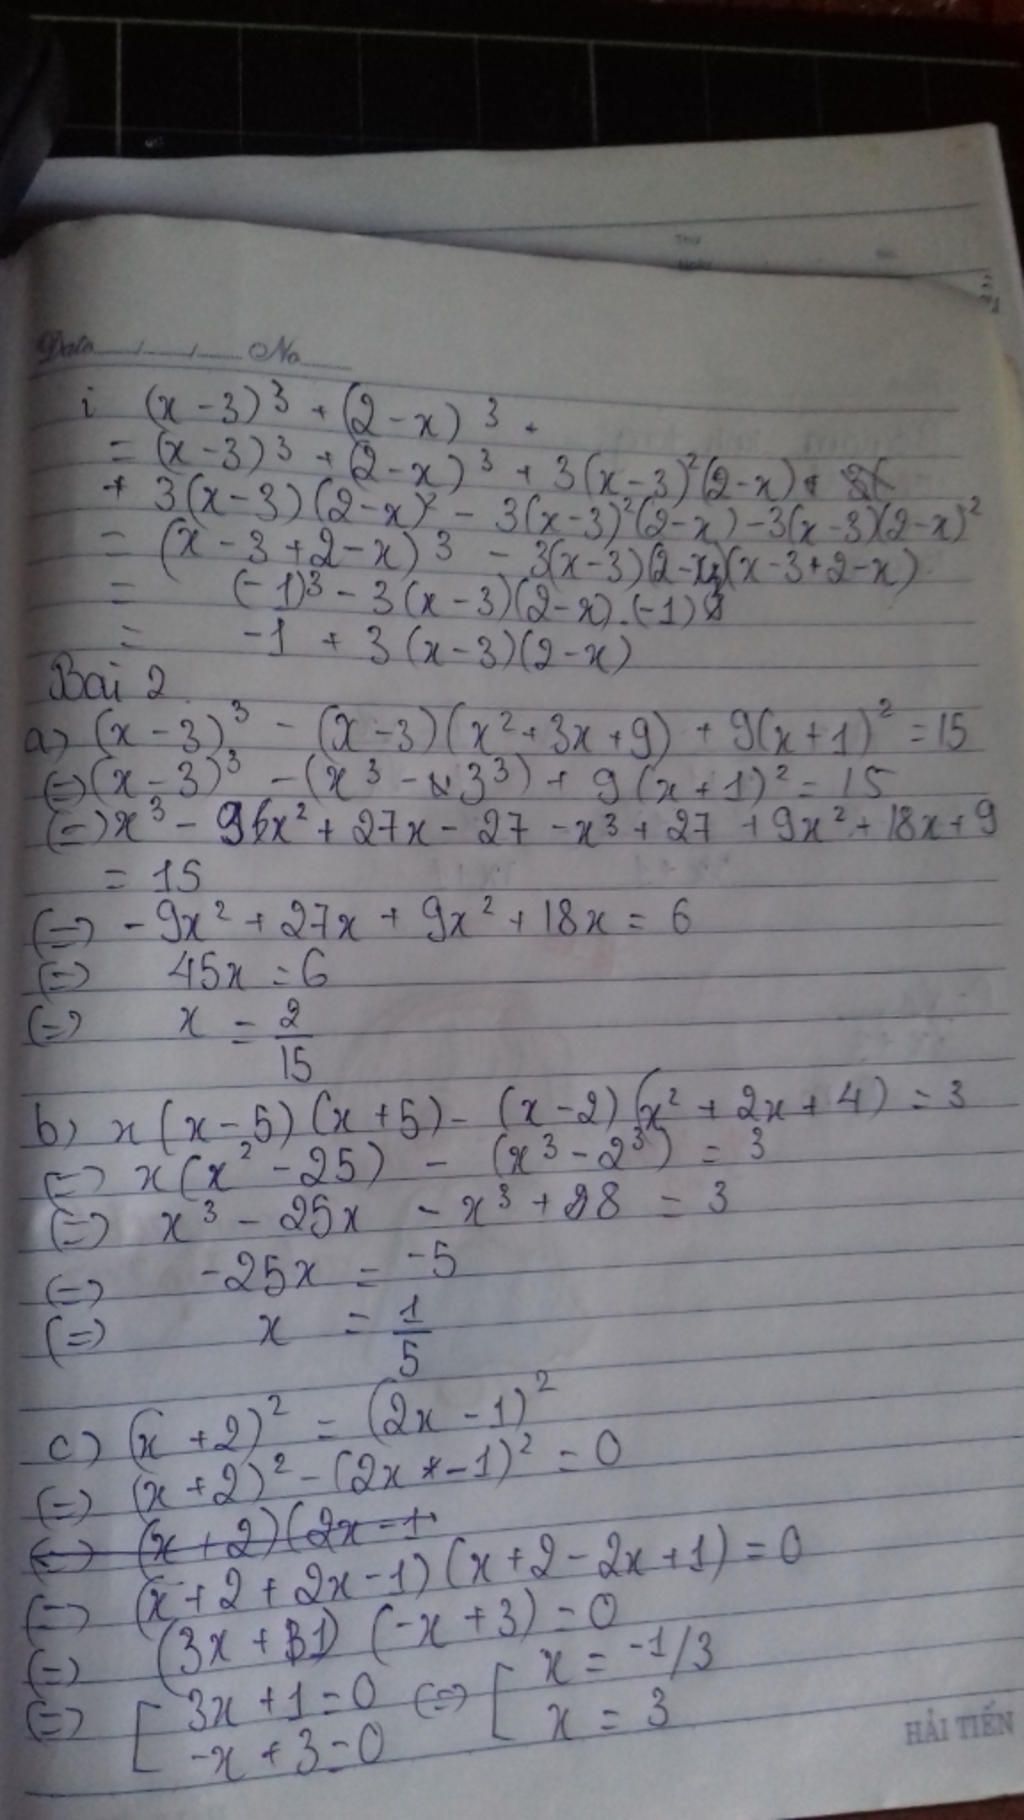 Date...../...../..... No.....
i (x-3)³ + (2-x)³.
= (x-3)³ + (2-x)³ + 3(x-3)²(2-x) +
+ 3(x-3)(2-x)² - 3(x-3)²(2-x) - 3(x-3)(2-x)²
= (x-3+2-x)³ - 3(x-3)(2-x)(x-3+2-x)
= (-1)³ - 3(x-3)(2-x).(-1)
= -1 + 3(x-3)(2-x)
Bài 2
a) (x-3)³ - (x-3)(x²+3x+9) + 9(x+1)² = 15
(=) (x-3)³ - (x³ - 3³) + 9(x+1)² = 15
(=) x³ - 9x² + 27x - 27 - x³ + 27 + 9x² + 18x + 9
= 15
(=) - 9x² + 27x + 9x² + 18x = 6
(=) 45x = 6
(=) x = 2/15
b) x(x-5)(x+5) - (x-2)(x² + 2x + 4) = 3
(=) x(x² - 25) - (x³ - 2³) = 3
(=) x³ - 25x - x³ + 8 = 3
(=) -25x = -5
(=) x = 1/5
c) (x+2)² = (2x-1)²
(=) (x+2)² - (2x-1)² = 0
(=) (x+2)(2x-1
(=) (x+2+2x-1)(x+2-2x+1) = 0
(=) (3x+1)(-x+3) = 0
(=) [ 3x+1=0 (=) [ x = -1/3
-x+3=0 x = 3
HẢI TIẾN